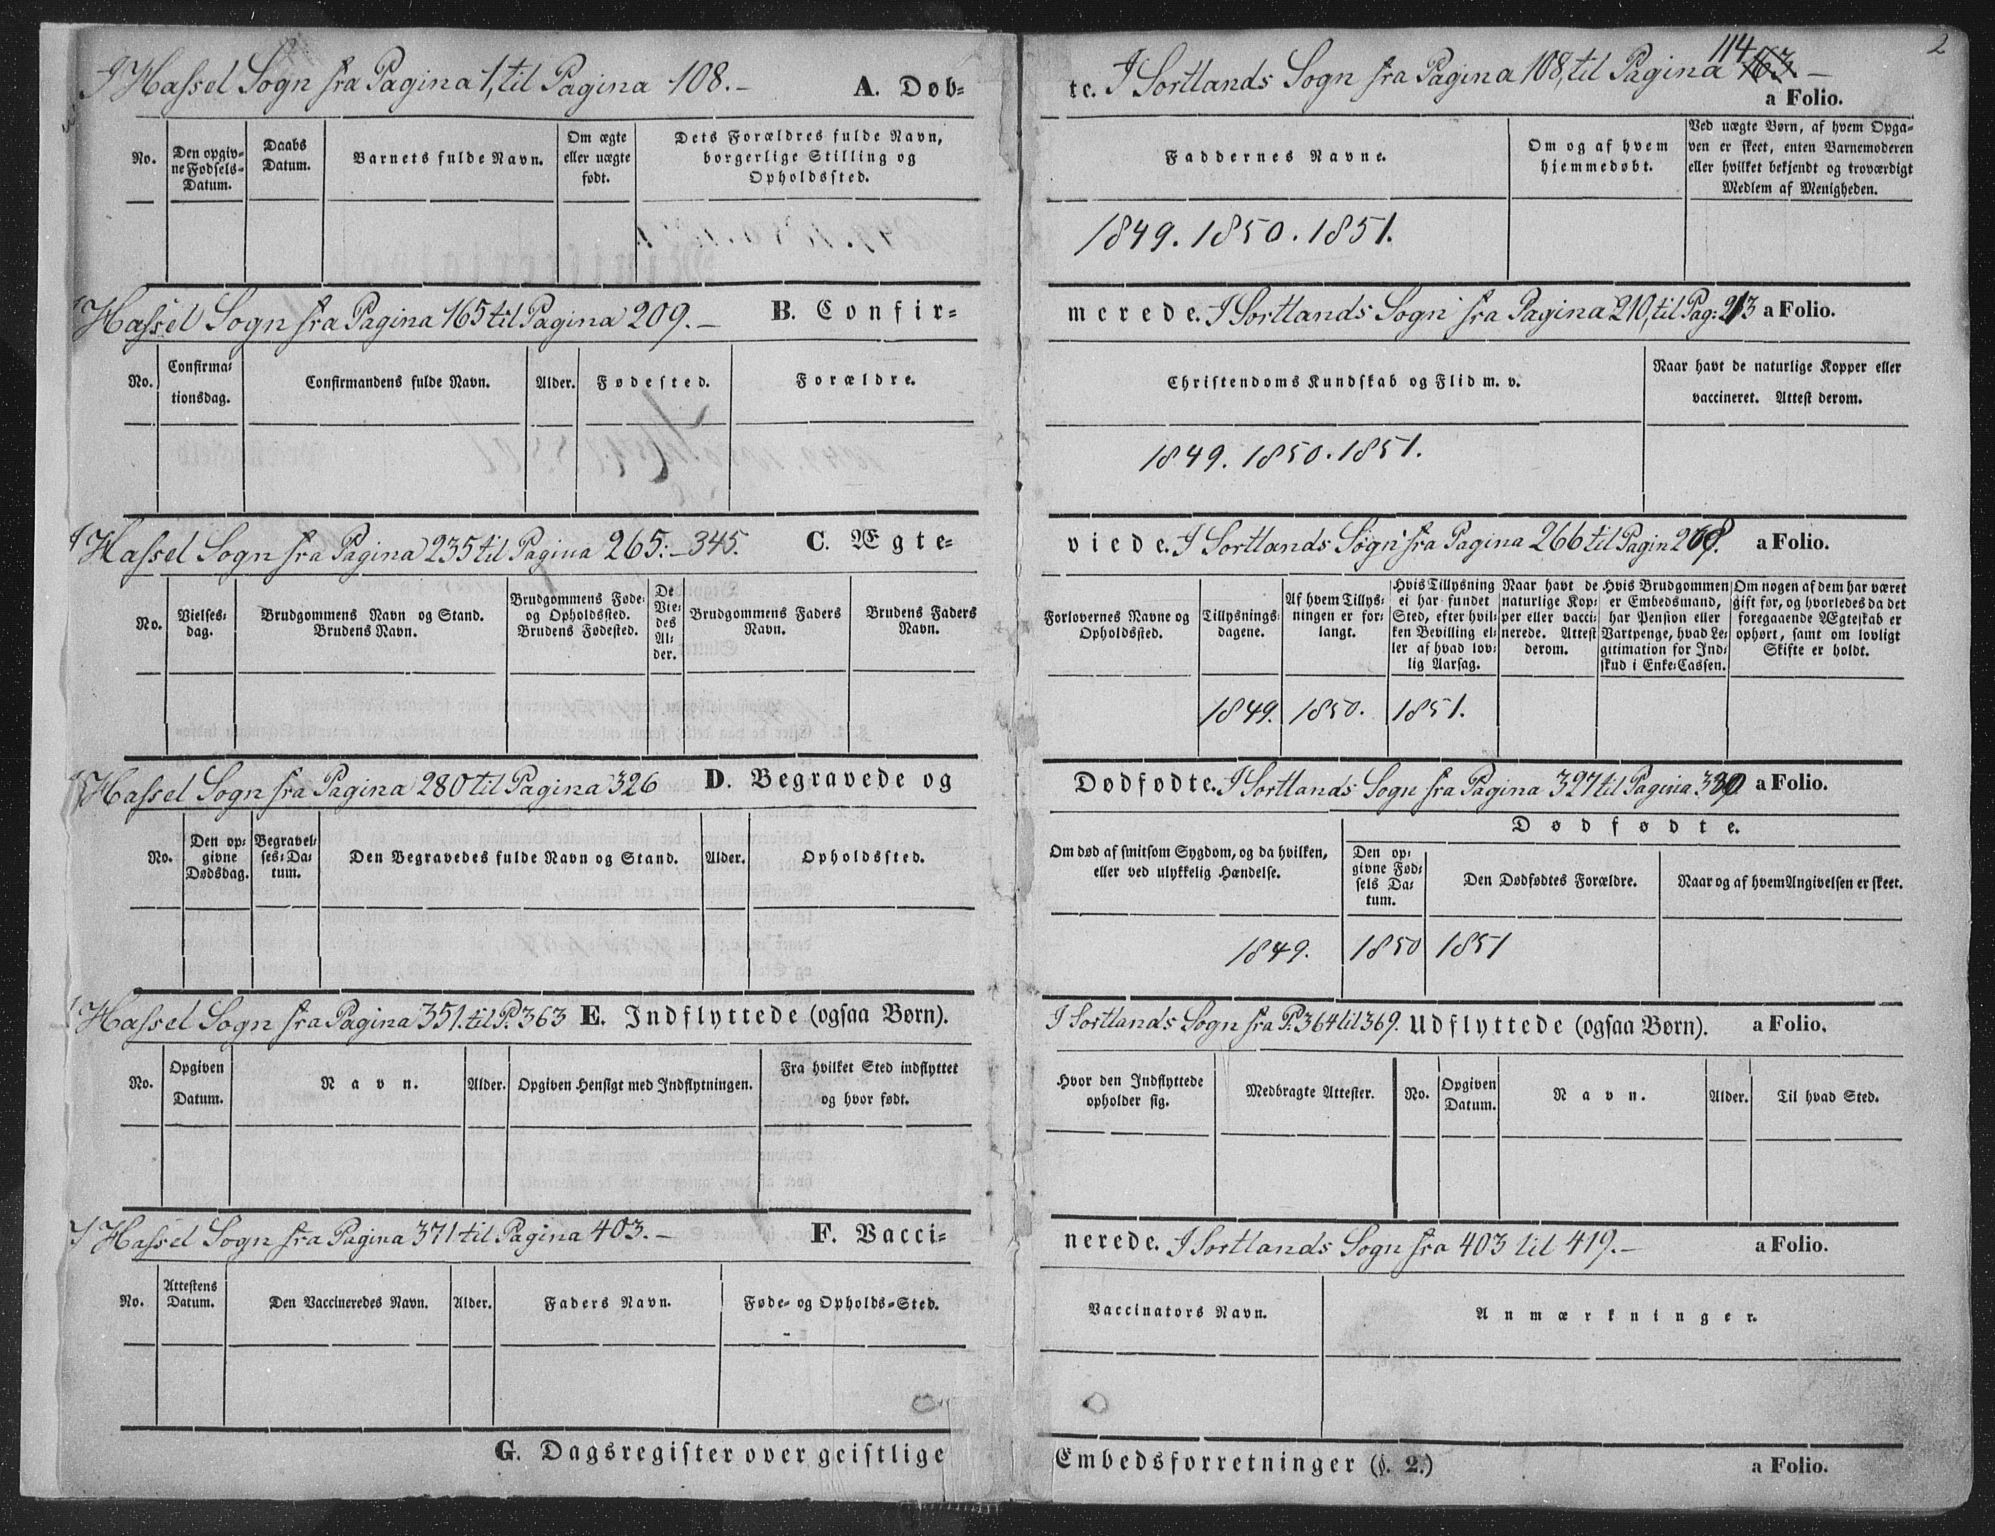 2
I Hassel Sogn fra Pagina 1, til Pagina 108.– A. Døb-
te. I Sortlands Sogn fra Pagina 108, til Pagina 163 114 – a Folio.
No.
Den opgiv-
ne Fødsels-
Datum.
Daabs
Datum.
Barnets fulde Navn.
Om ægte
eller uægte
født.
Dets Forældres fulde Navn,
borgerlige Stilling og
Opholdssted.
Faddernes Navne.
Om og af hvem
hjemmedøbt.
Ved uægte Børn, af hvem Opga-
ven er skeet, enten Barnemoderen
eller hvilket bekjendt og troværdigt
Medlem af Menigheden.
1849. 1850. 1851.
I Hassel Sogn fra Pagina 165 til Pagina 209.– B. Confir-
merede. I Sortlands Sogn fra Pagina 210, til Pag: 213 a Folio.
No.
Confirma-
tionsdag.
Confirmandens fulde Navn.
Alder.
Fødested.
Forældre.
Christendoms Kundskab og Flid m. v.
Naar havt de naturlige Kopper eller
vaccineret. Attest derom.
1849. 1850. 1851.
I Hassel Sogn fra Pagina 235 til Pagina 265.–345. C. Ægte-
viede. I Sortlands Sogn fra Pagina 266 til Pagin a Folio.
No.
Vielses-
dag.
Brudgommens Navn og Stand.
Brudens Navn.
Brudgommens Føde-
og Opholdssted.
Brudens Fødested.
De
Vie-
des
Al-
der.
Brudgommens Faders
Navn.
Brudens Faders
Navn.
Forlovernes Navne og
Opholdssted.
Tillysnings-
dagene.
Af hvem Tillys-
ningen er for-
langt.
Hvis Tillysning
ei har fundet
Sted, efter hvil-
ken Bevilling el-
ler af hvad lov-
lig Aarsag.
Naar havt de
naturlige Kop-
per eller vacci-
nerede. Attest
derom.
Hvis Brudgommen
er Embedsmand,
har Pension eller
Vartpenge, hvad Le-
gitimation for Ind-
skud i Enke-Cassen.
Om nogen af dem har været
gift før, og hvorledes da det
foregaaende Ægteskab er
ophørt, samt om lovligt
Skifte er holdt.
1849. 1850. 1851.
I Hassel Sogn fra Pagina 280 til Pagina 326 D. Begravede og
Dødfødte. I Sortlands Sogn fra Pagina 327 til Pagina a Folio.
No.
Den op-
givne
Dødsdag.
Begravel-
ses-Da-
tum.
Den Begravedes fulde Navn og Stand.
Alder.
Opholdssted.
Om død af smitsom Sygdom, og da hvilken,
eller ved ulykkelig Hændelse.
Dødfødte.
Den op-
givne Fød-
sels Da-
tum.
Den Dødfødtes Forældre.
Naar og af hvem Angivelsen er skeet.
1849. 1850 1851
I Hassel Sogn fra Pagina 351. til P. 363 E. Indflyttede (ogsaa Børn).
I Sortlands Sogn fra P. 364 til 369. Udflyttede (ogsaa Børn). a Folio.
No.
Opgiven
Datum.
Navn.
Alder.
Opgiven Hensigt med Indflytningen.
Fra hvilket Sted indflyttet
og hvor født.
Hvor den Indflyttede
opholder sig.
Medbragte Attester.
No.
Opgiven
Datum.
Navn.
Alder.
Til hvad Sted.
I Hassel Sogn fra Pagina 371 til Pagina 403.– F. Vacci-
nerede. I Sortlands Sogn fra 403 til 419.– a Folio.
No.
Attestens
Datum.
Den Vaccineredes Navn.
Alder.
Faders Navn.
Føde- og Opholds-Sted.
Vaccinators Navn.
Anmærkninger.
G. Dagsregister over geistlige
Embedsforretninger (§. 2.) a Folio.